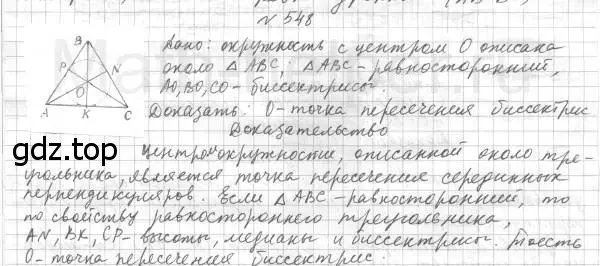 № 548
Дано: окружность с центром О описана
около △ABC; △ABC - равносторонний,
AO, BO, CO - биссектрисы.
Доказать: О - точка пересечения биссектрис
Доказательство
Центром окружности, описанной около тре-
угольника, является точка пересечения серединных
перпендикуляров. Если △ABC - равносторонний, то
по свойству равностороннего треугольника,
AN, BK, CP - высоты, медианы и биссектрисы. То есть
О - точка пересечения биссектрис.
B
P
N
O
A
K
C
gdz.top